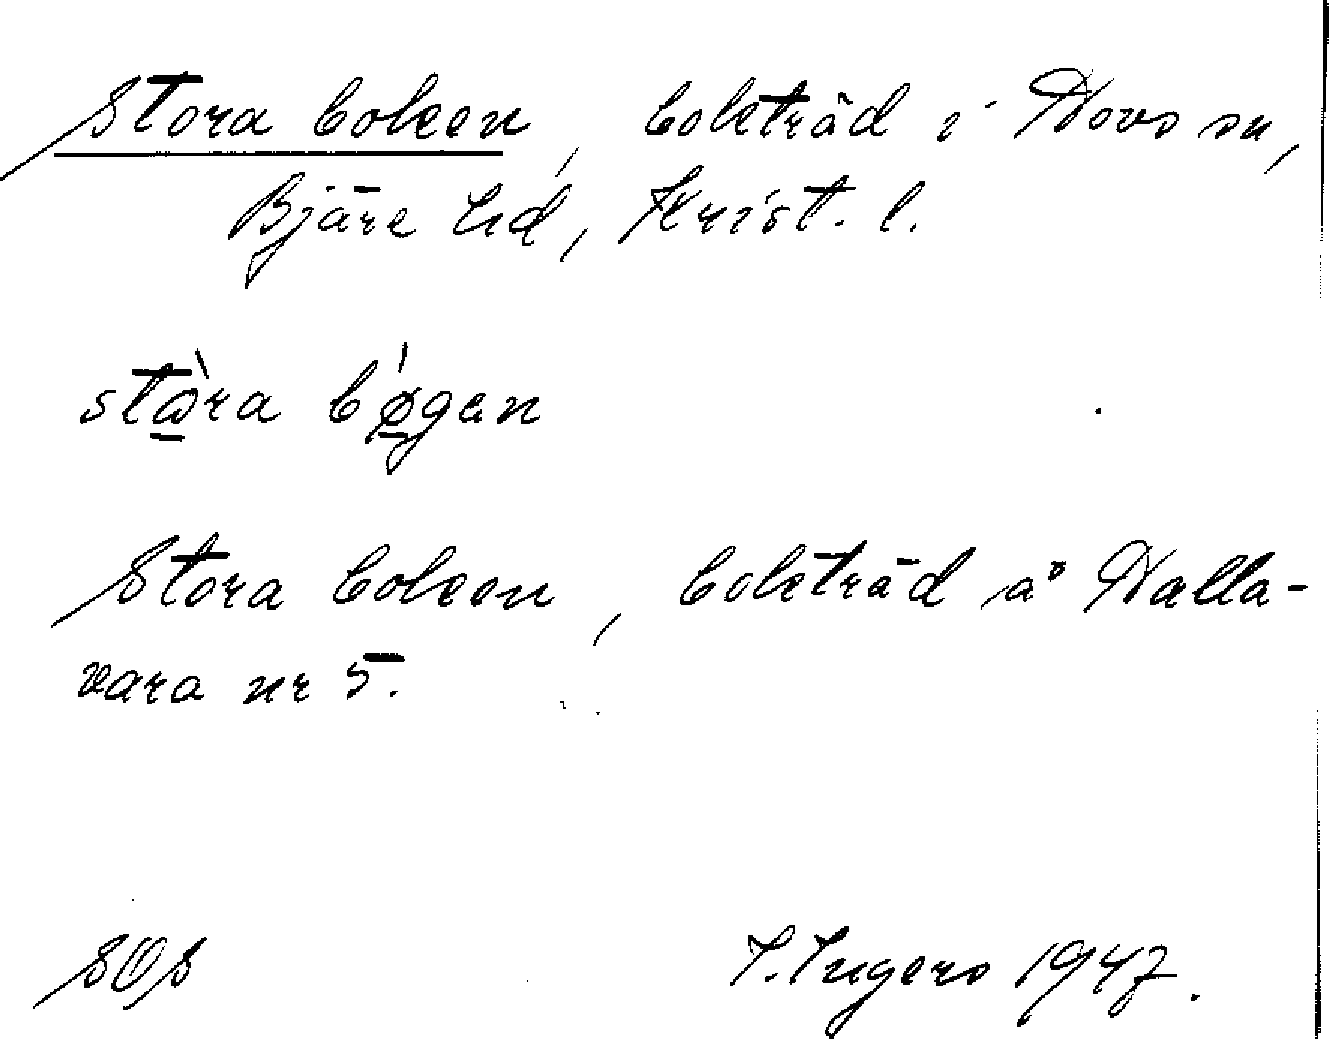 Stora boken, bokträd i Hovs sn,
Bjäre hd, Krist. l.
stɷ̀ra bǿgen
Stora boken, bokträd å Halla-
vara nr 5.
SOS I. Ingers 1947.